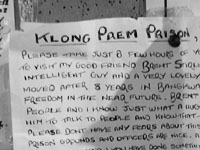 KLONG PAEM PRISON,
PLEASE TAKE JUST A FEW HOURS OF Y
TO VISIT MY GOOD FRIEND BRENT
INTELLIGENT GUY AND A VERY LOVELY
MOVED AFTER 8 YEARS IN BANGKWA
FREEDOM IN THE NEAR FUTURE. BRENT
PEOPLE AND I KNOW JUST WHAT A HUG
HIM TO TALK TO PEOPLE AND KNOW THAT
PLEASE DONT HAVE ANY FEARS ABOUT THIS
PRISON GROUNDS AND OFFICERS ARE NICE.
YOU HAVE DONE SOMETHIN